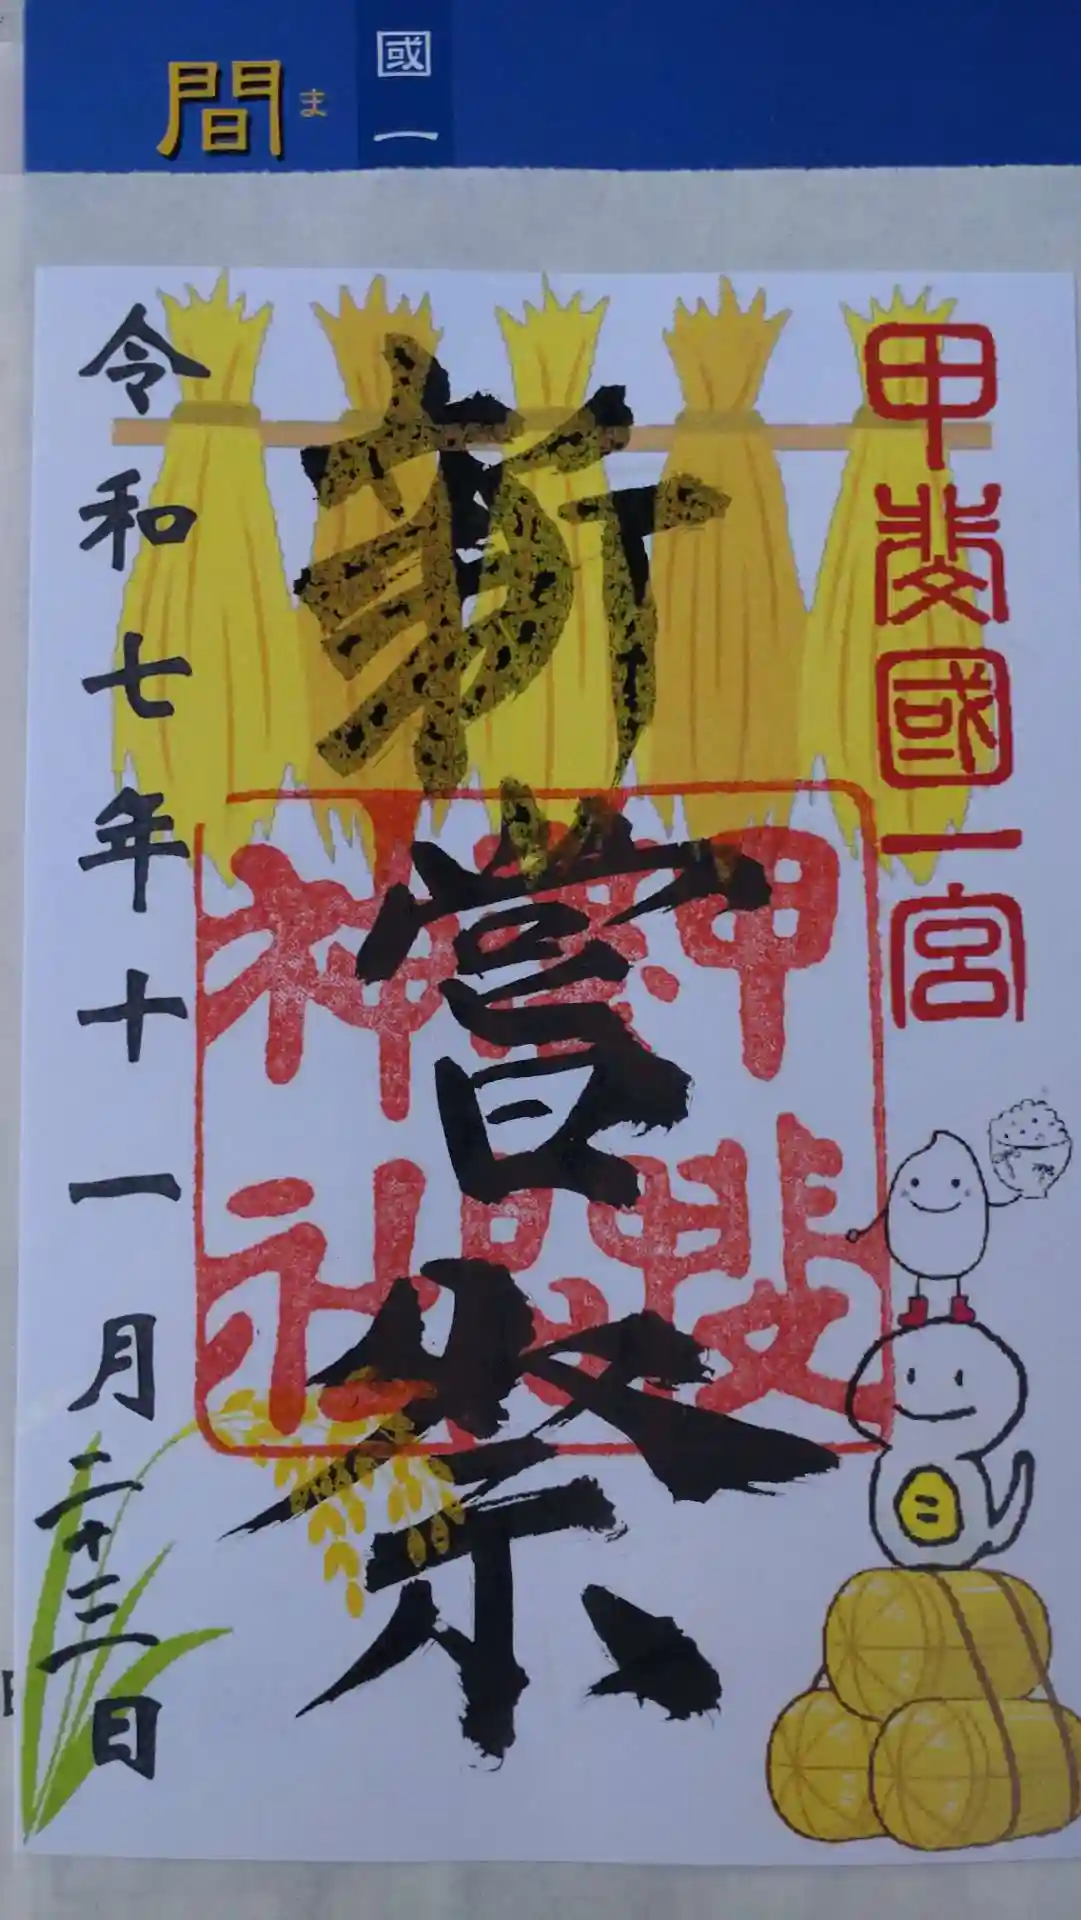 國一
間ま
甲斐國一宮
新嘗祭
甲斐
神社
令和七年十一月二十三日